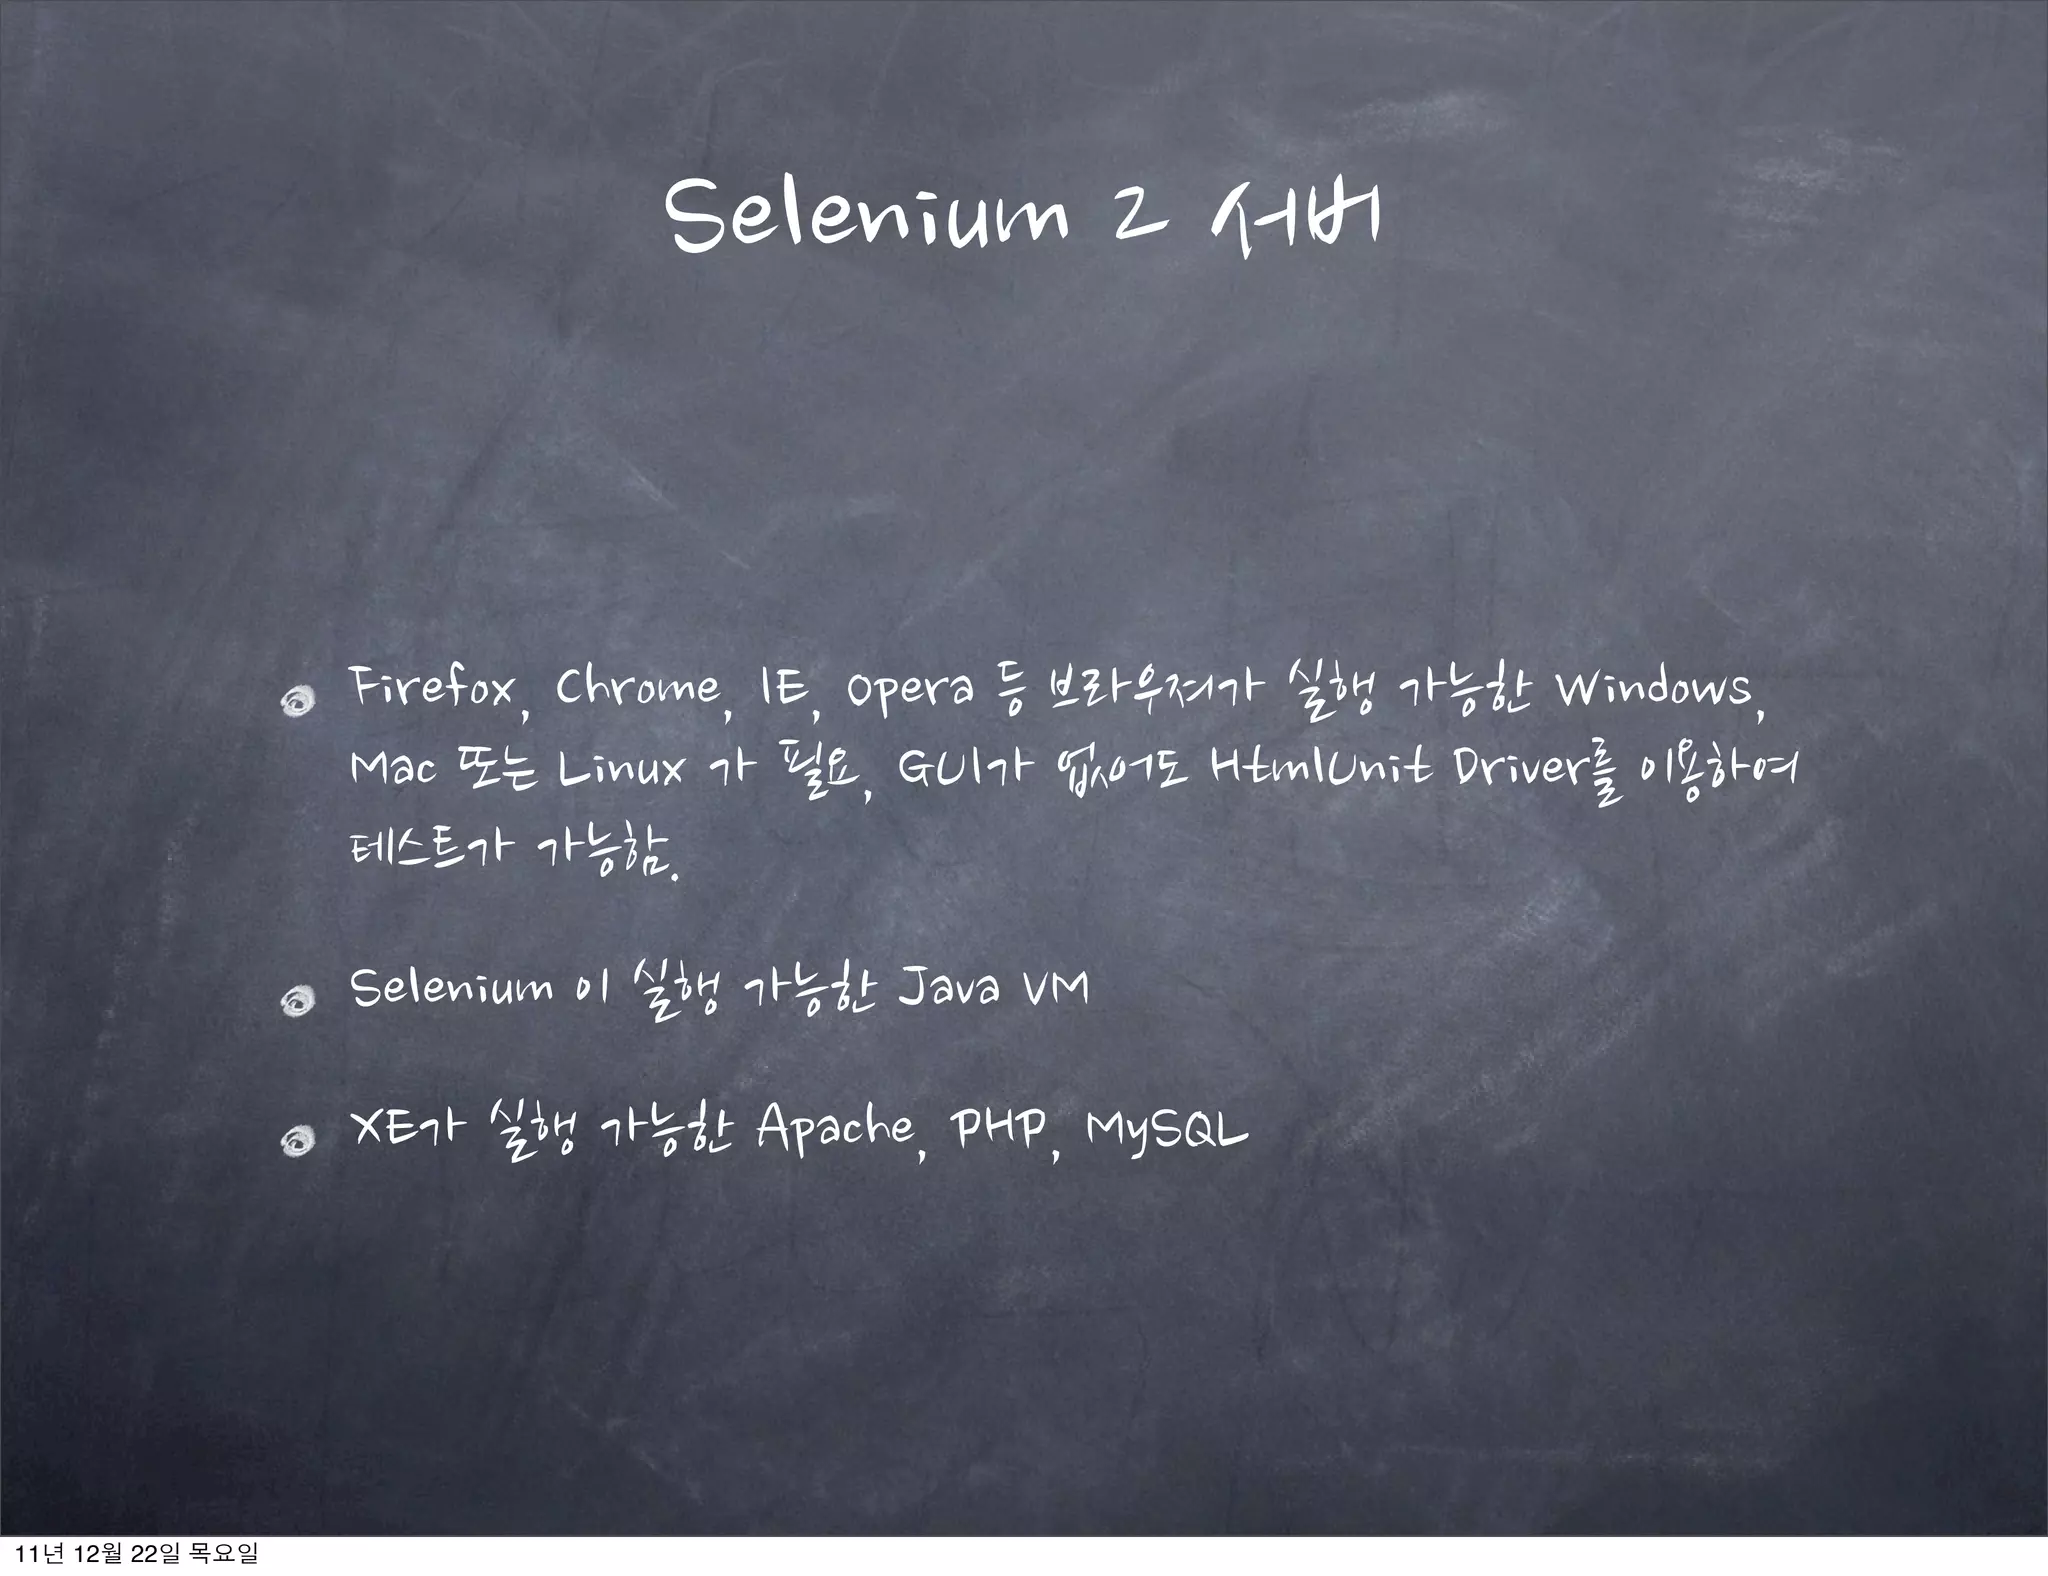 Selenium 2 서버
Firefox, Chrome, IE, Opera 등 브라우져가 실행 가능한 Windows,
Mac 또는 Linux 가 필요, GUI가 없어도 HtmlUnit Driver를 이용하여
테스트가 가능함.
Selenium 이 실행 가능한 Java VM
XE가 실행 가능한 Apache, PHP, MySQL
11년 12월 22일 목요일